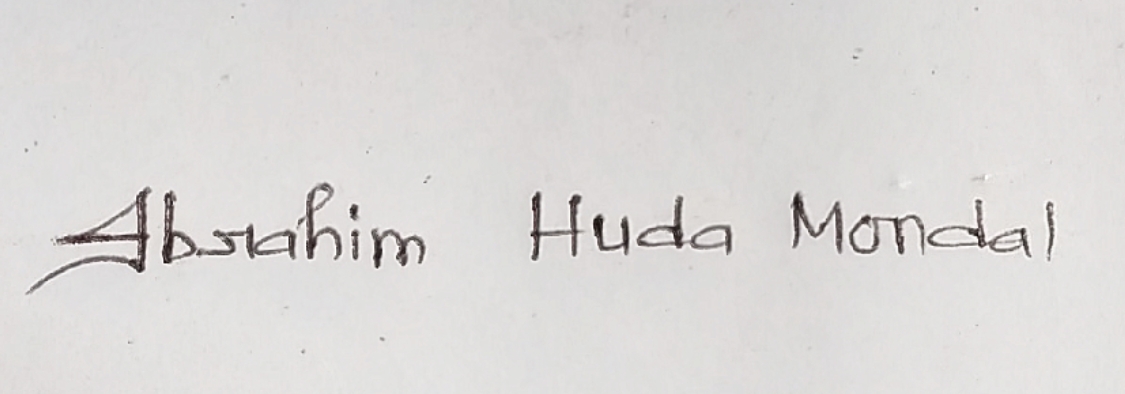 Abrahim Huda Mondal